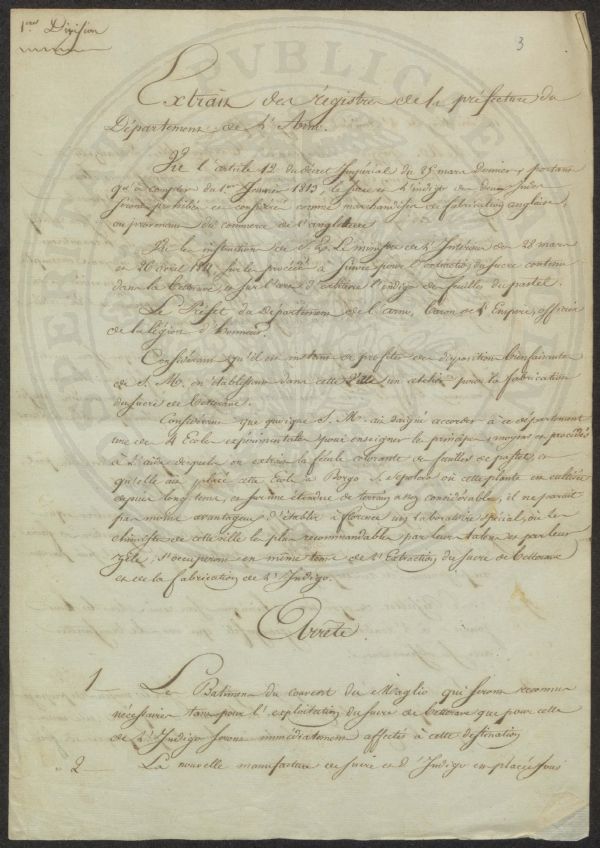 1ere Division
3
Extrait des régistres de la préfecture du
Département de l'Arno.
Vu l'article 12 du décret Impérial du 25 mars dernier, portant
qu'à compter du 1er Janvier 1813, le sucre et l'indigo des deux Indes
seront prohibés et considérés comme marchandises de fabrication anglaise,
ou provenant du commerce de l'angleterre
Vu les instructions de S. Ex. Le ministre de l'Intérieur des 28 mars
et 26 avril 1811, sur les procédés à suivre pour l'extraction du sucre contenu
dans la betterave, et sur l'art d'extraire l'indigo des feuilles du pastel.
Le Préfet du département de l'arno, Baron de l'Empire, officier
de la légion d'honneur.
Considérant qu'il est instant de profiter des dispositions bienfaisantes
de S. M. en établissant dans cette Ville un atelier pour la fabrication
du sucre de Betterave.
Considérant que quoique S. M. ait daigné accorder à ce département
une des 4 Ecoles expérimentales pour enseigner les principes, moyens et procédés
à l'aide desquels on extrait la fécule colorante des feuilles de pastel, et
qu'elle ait placé cette Ecole à Borgo S. Sepolcro où cette plante est cultivée
depuis longtems, et sur une étendue de terrain assez considérable, il ne parait
pas moins avantageux d'établir à florence un Laboratoire spécial, où les
chimistes de cette ville les plus recommandables par leurs talens et par leur
zèle, s'occuperont en même tems de l'Extraction du sucre de betterave
et de la fabrication de l'Indigo.
Arrête
1 Les Batimens du couvent du Maglio qui seront reconnus
nécessaires tant pour l'exploitation du sucre de betterave que pour celle
de l'Indigo seront immédiatement affectés à cette destination
2 La nouvelle manufacture de sucre et d'Indigo est placée sous